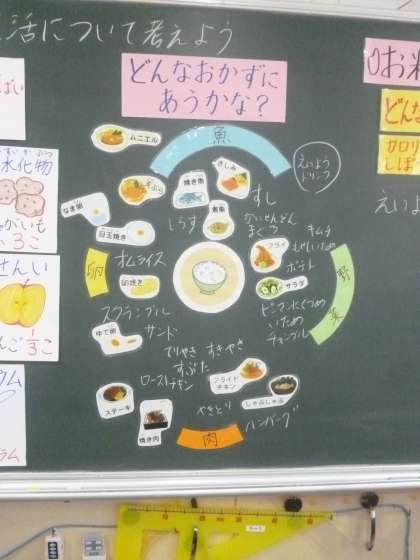 活について考えよう
どんなおかずに
あうかな？
魚
ムニエル
さしみ
焼き魚
天ぷら
煮魚
すし
かいせんどん
まぐろ
しらす
えいよう
ドリンク
なま卵
目玉焼き
卵
オムライス
卵焼き
スクランブル
ゆで卵
サンド
キムチ
やさいいため
フライ
ポテト
サラダ
野菜
ピーマンにくづめ
いため
てりやき
すきやき
すぶた
ローストチキン
フライド
チキン
しゃぶしゃぶ
ステーキ
焼き肉
やきとり
ハンバーグ
肉
水化物
こ
せんい
りんご
お米
どんな
カロリ
しぼ
えいよ
10
20
30